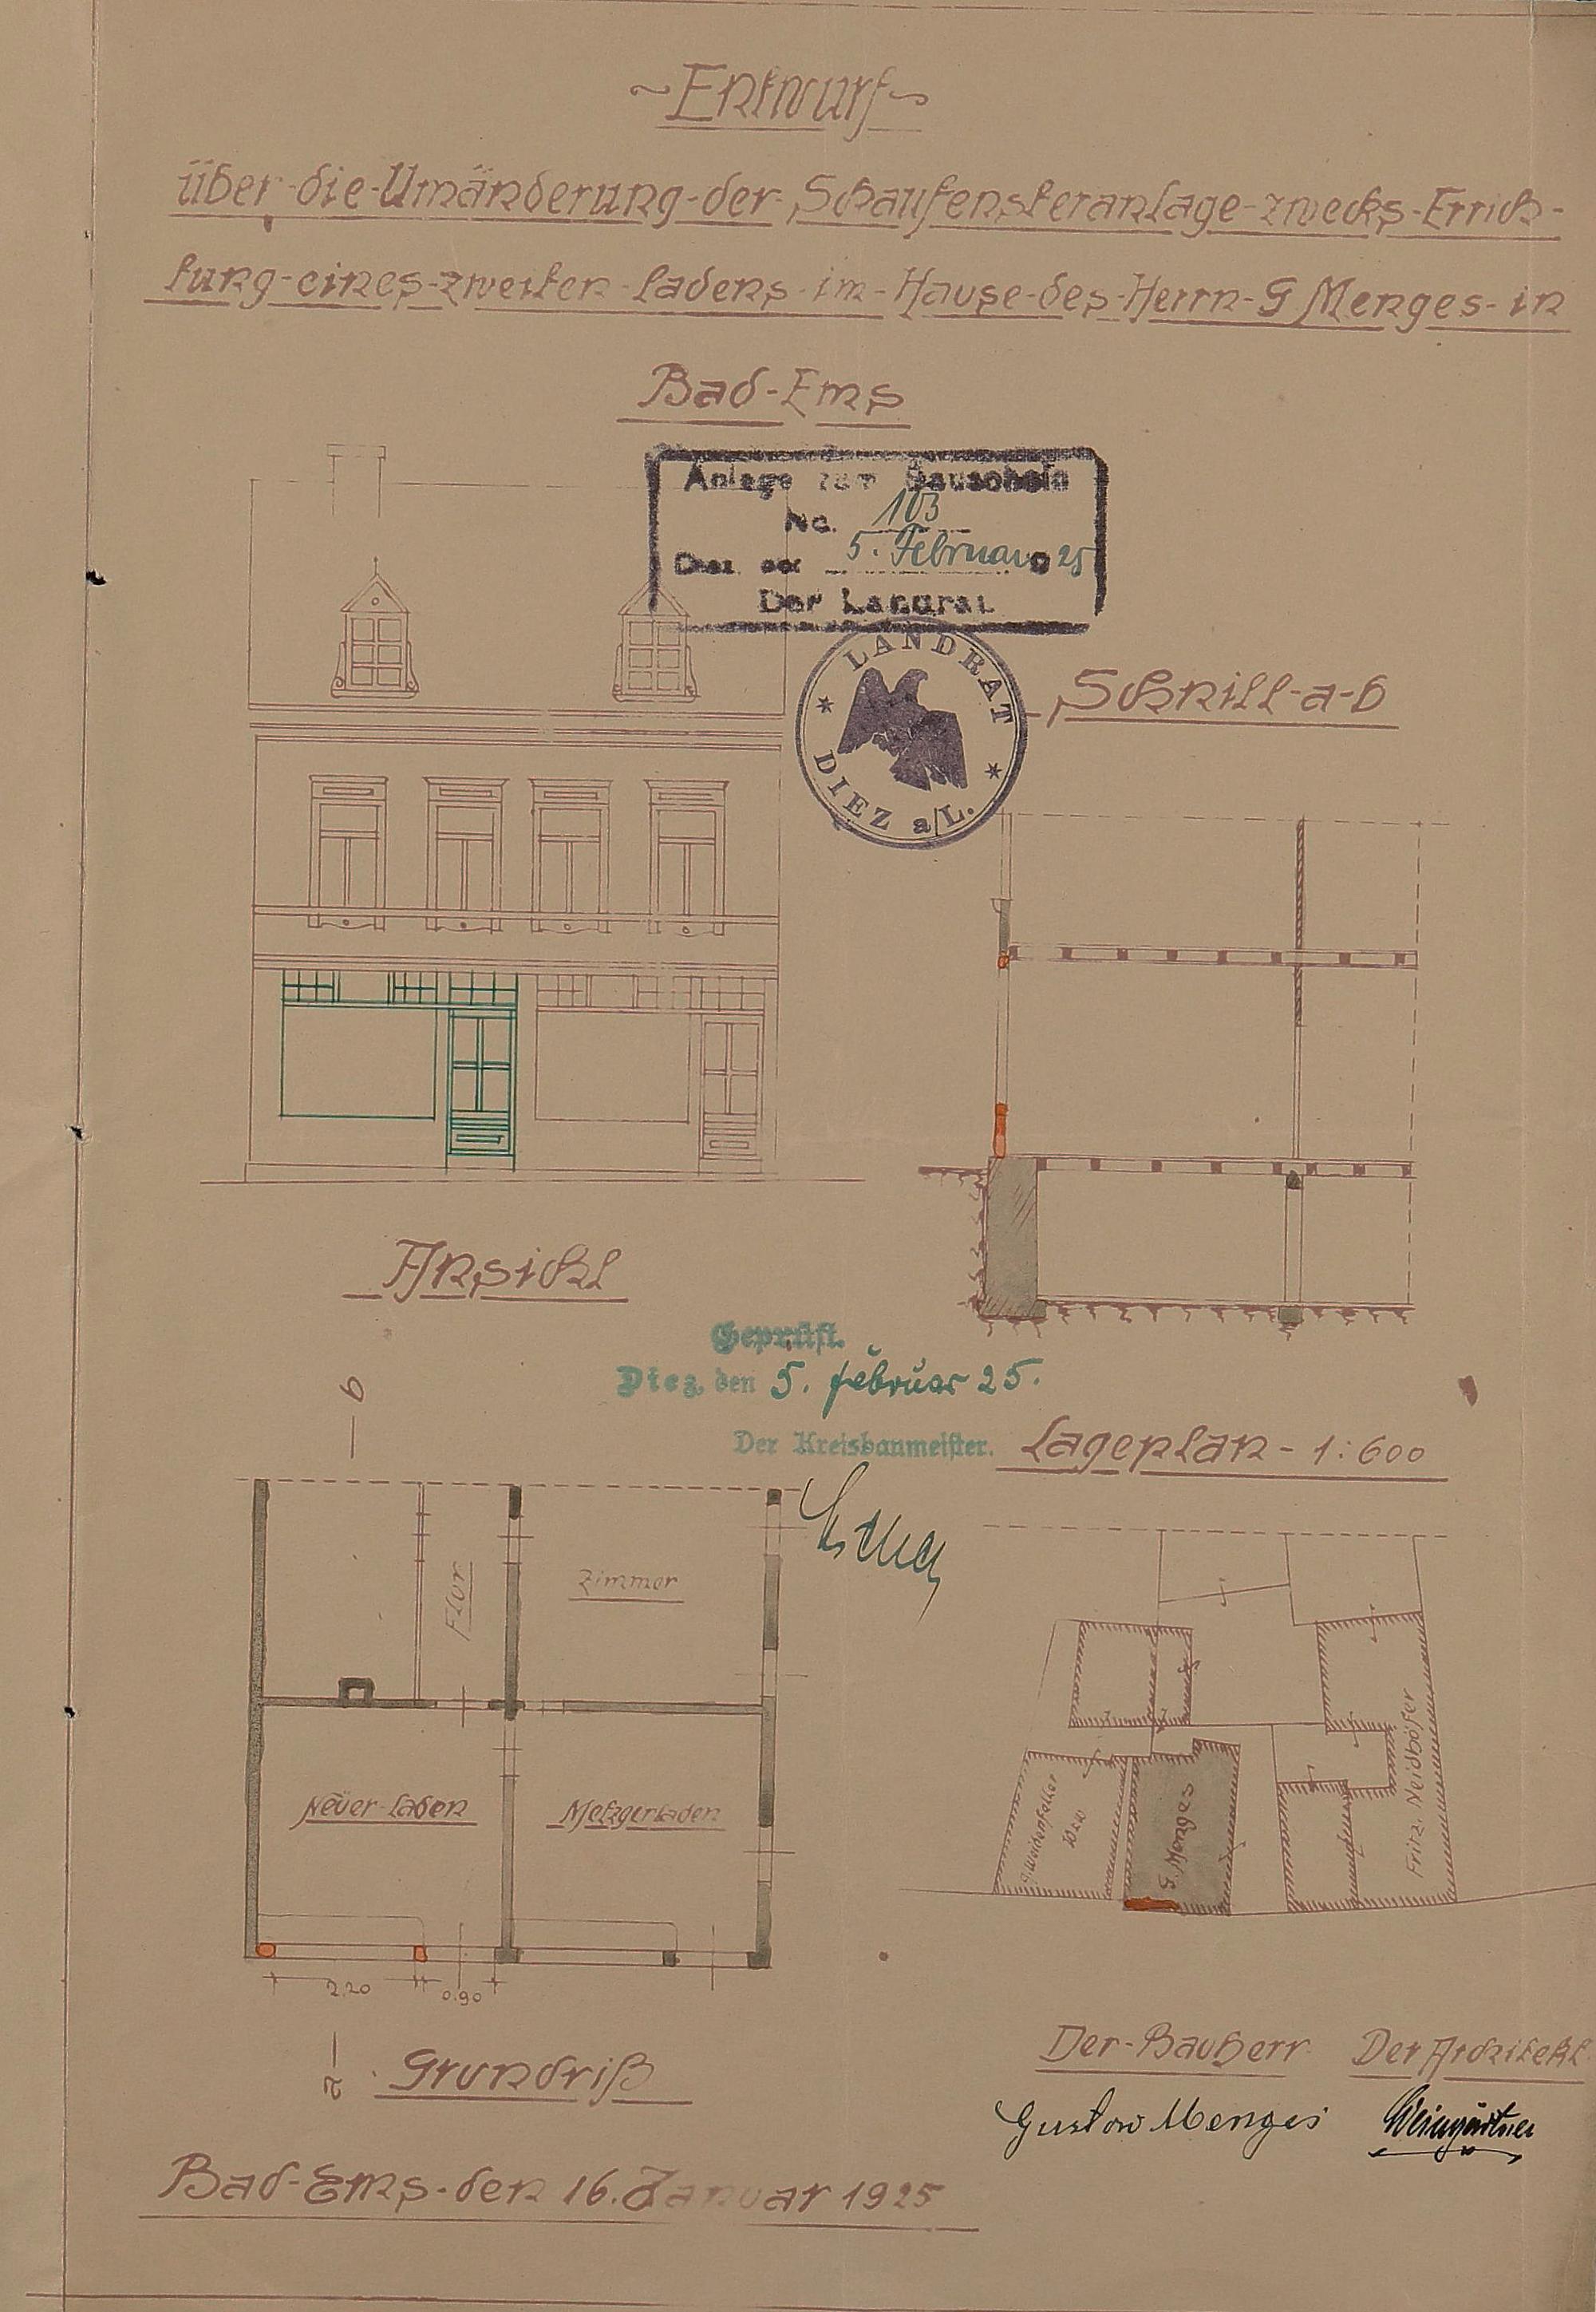 Entwurf
über die Umänderung der Schaufensteranlage zwecks Errich-
tung eines zweiten Ladens im Hause des Herrn G Menges in
Bad-Ems
Anlage zum Bauschein
No. 103
Diez den 5. Februar 25
Der Landrat
LANDRAT
DIEZ a/L.
Schnitt-a-b
Ansicht
Geprüft.
Diez, den 5. Februar 25.
Der Kreisbaumeister.
Lageplan - 1:600
b
Flur
Zimmer
Neuer-Laden
Metzgerladen
Wwe
G. Menges
Fritz. Neidhöfer
2,20
0,90
a
Grundriß
Der-Bauherr
Der Architekt
Gustav Menges
Weingärtner
Bad-Ems-den 16. Januar 1925